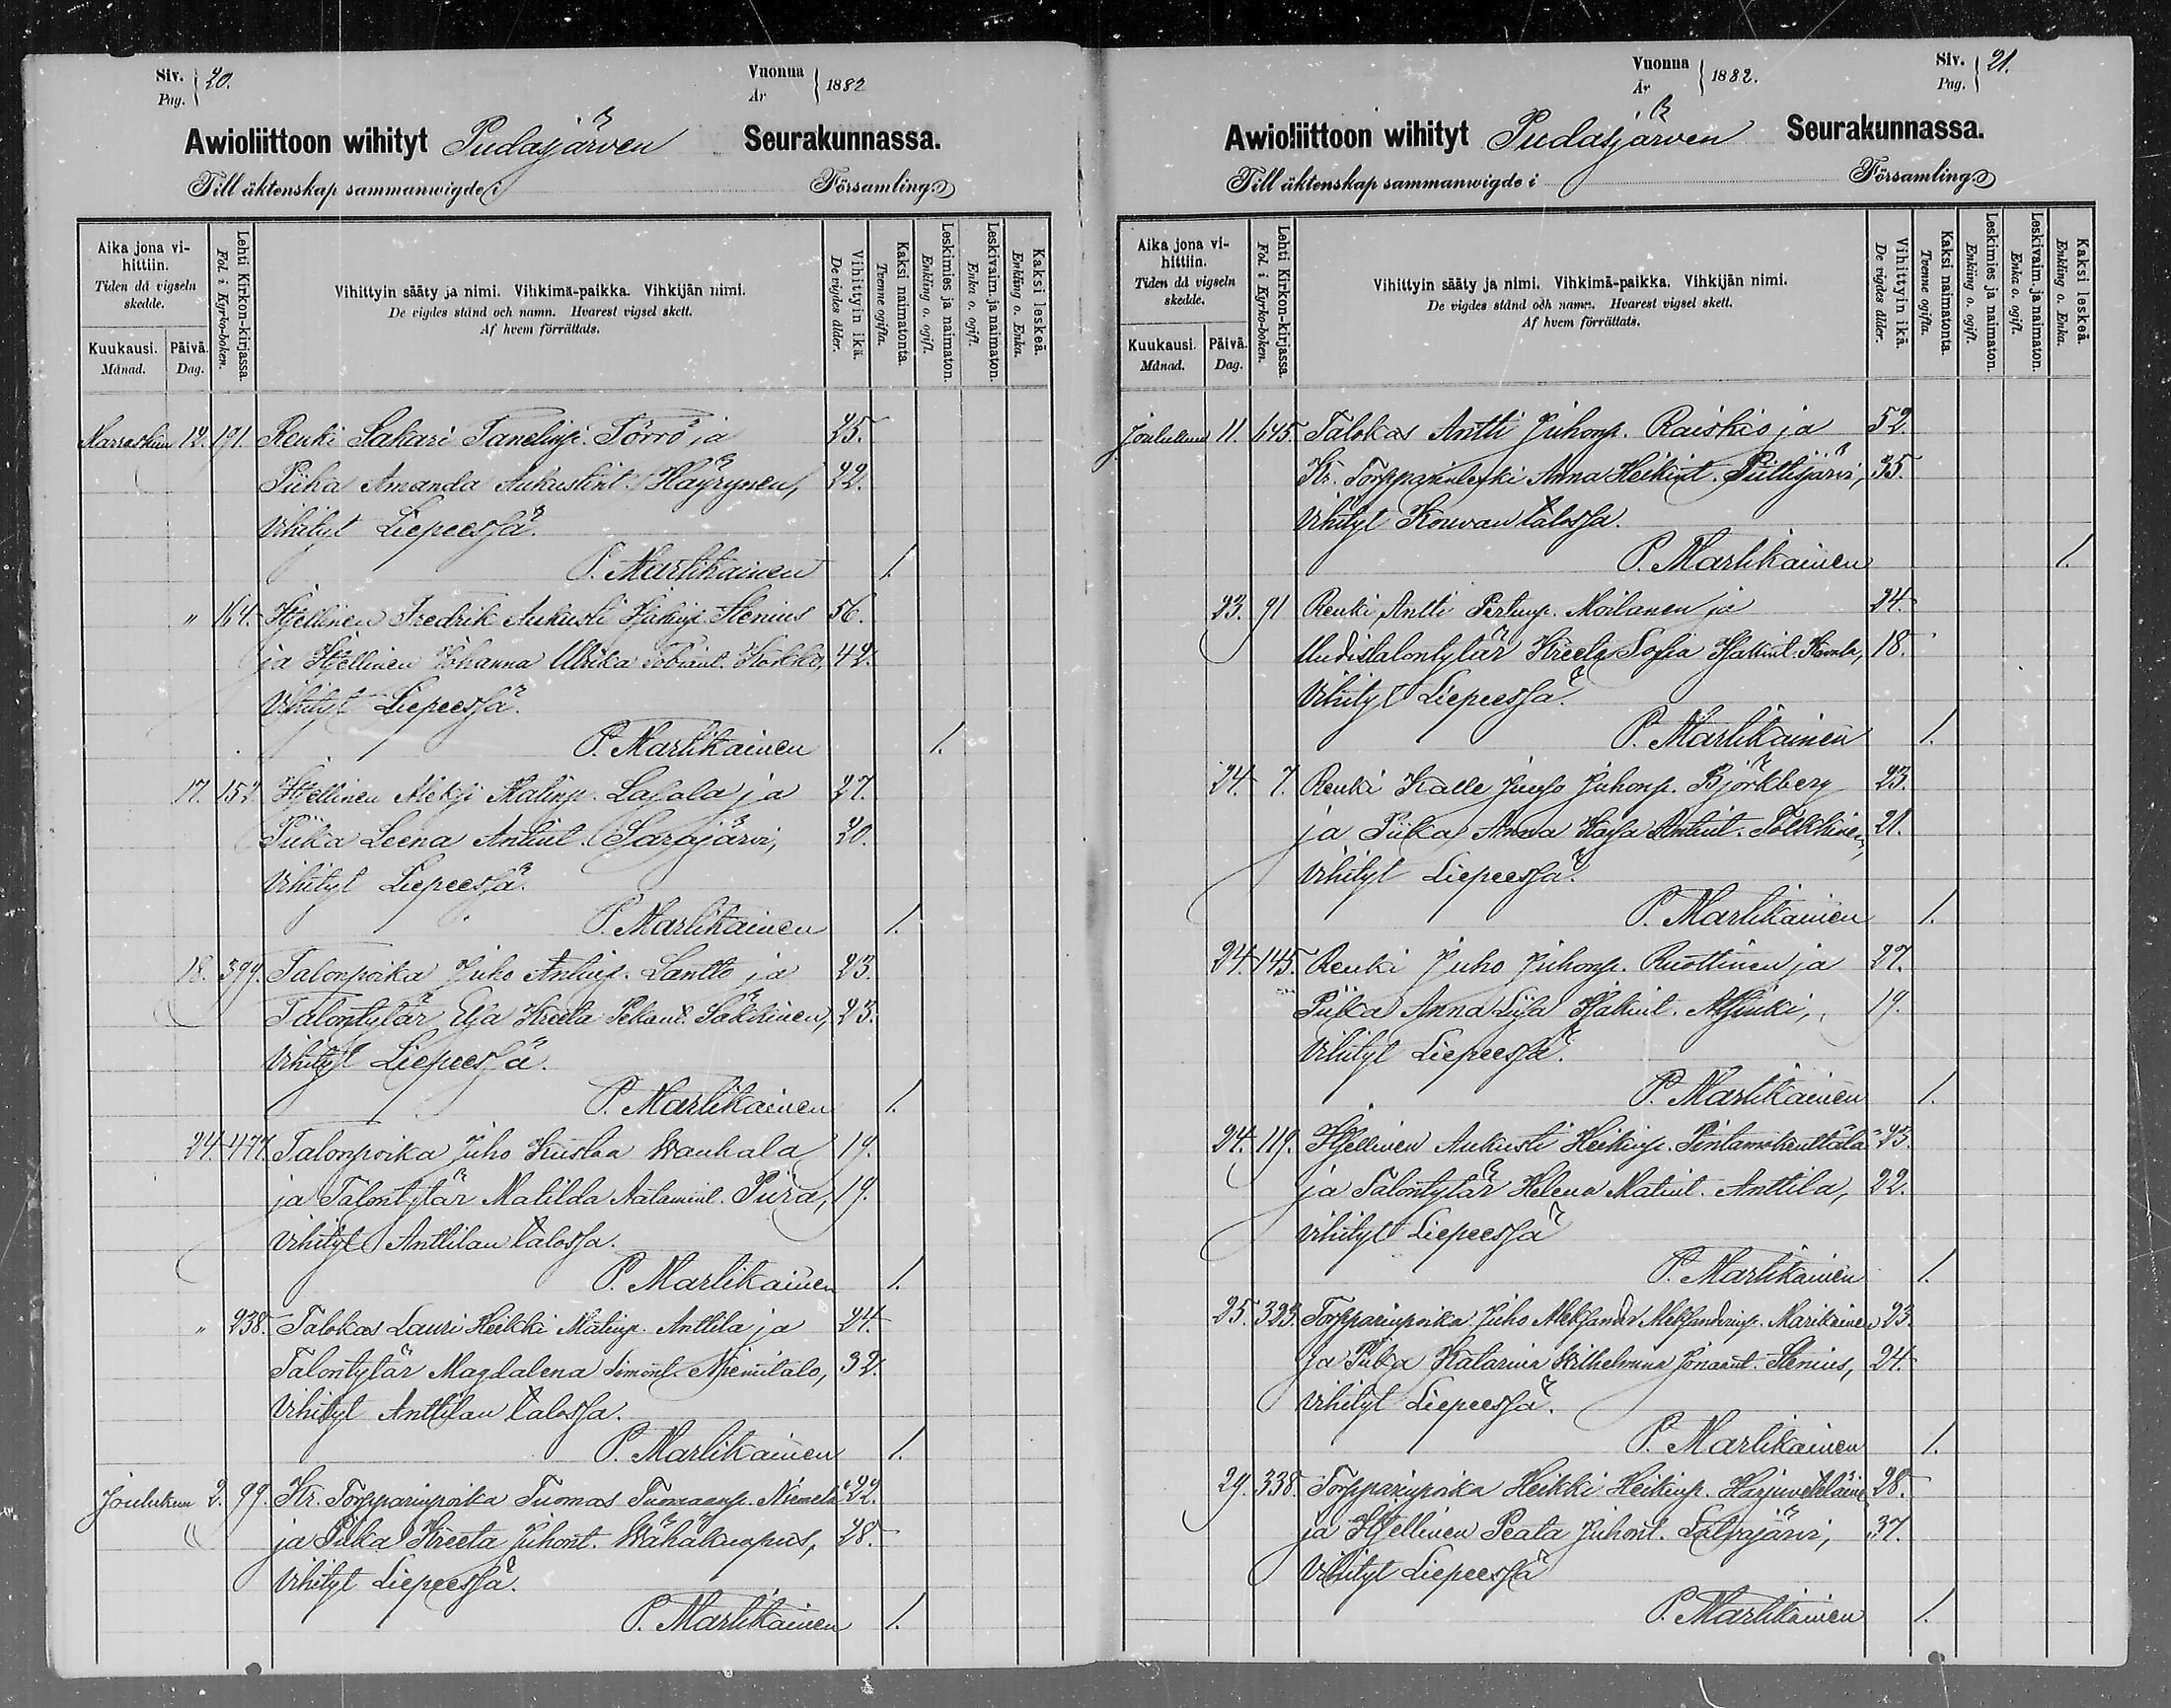 Siv. 20.
Pag.
Vuonna 1882
År
Awioliittoon wihityt Pudasjärven Seurakunnassa.
Till äktenskap sammanwigde i Församling.
Aika jona vihittiin.
Tiden då vigseln skedde.
Kuukausi. Månad.
Päivä. Dag.
Lehti Kirkon-kirjassa.
Fol. i Kyrko-boken.
Vihittyin sääty ja nimi. Vihkimä-paikka. Vihkijän nimi.
De vigdes stånd och namn. Hvarest vigsel skett.
Af hvem förrättats.
Vihittyin ikä.
De vigdes ålder.
Kaksi naimatonta.
Tvenne ogifta.
Leskimies ja naimaton.
Enkling o. ogift.
Leskivaim. ja naimaton.
Enka o. ogift.
Kaksi leskeä.
Enkling o. Enka.
Marraskuun 12. 191. Renki Sakari Tanelinp. Törrö ja 25.
Piika Amanda Aukustint. Häyrynen, 22.
Vihityt Liepeessä.
P. Martikainen 1.
" 164. Itsellinen Fredrik Aukusti Stenius 56.
ja Itsellinen Johanna Ulrika Kokko, 42.
Vihityt Liepeessä.
P. Martikainen 1.
17. 152. Itsellinen Aleksi Matinp. Lasala ja 27.
Piika Leena Antint. Sarajärvi, 20.
Vihityt Liepeessä.
P. Martikainen 1.
18. 399. Talonpoika Juho Antinp. Lantto ja 23.
Talontytär Kreeta Pekant. Säkkinen, 23.
Vihityt Liepeessä.
P. Martikainen 1.
24. 477. Talonpoika Juho Kustaa Wanhala 19.
ja Talontytär Matilda Aatamint. Piira, 19.
Vihityt Anttilan talossa.
P. Martikainen 1.
" 238. Talokas Lauri Heikki Matinp. Anttila ja 24.
Talontytär Magdalena Simont. Niemitalo, 32.
Vihityt Anttilan talossa.
P. Martikainen 1.
Joulukuun 2. 99. Kr. Torpparinpoika Tuomas Tuomaanp. Niemelä 22.
ja Piika Kreeta Juhont. Wähäkuopus, 28.
Vihityt Liepeessä.
P. Martikainen 1.
Vuonna 1882.
År
Siv. 21.
Pag.
Awioliittoon wihityt Pudasjärven Seurakunnassa.
Till äktenskap sammanwigde i Församling.
Aika jona vihittiin.
Tiden då vigseln skedde.
Kuukausi. Månad.
Päivä. Dag.
Lehti Kirkon-kirjassa.
Fol. i Kyrko-boken.
Vihittyin sääty ja nimi. Vihkimä-paikka. Vihkijän nimi.
De vigdes stånd och namn. Hvarest vigsel skett.
Af hvem förrättats.
Vihittyin ikä.
De vigdes ålder.
Kaksi naimatonta.
Tvenne ogifta.
Leskimies ja naimaton.
Enkling o. ogift.
Leskivaim. ja naimaton.
Enka o. ogift.
Kaksi leskeä.
Enkling o. Enka.
Joulukuun 11. 145. Talokas Antti Juhonp. Raiskio ja 52.
Kr. Torpparinleski Anna Heikint. Puttisjärvi, 35.
Vihityt Kouvan talossa.
P. Martikainen 1.
23. 91 Renki Antti Pertunp. Moilanen ja 24.
Uudistalontytär Kreeta Sofia 18.
Vihityt Liepeessä.
P. Martikainen 1.
24. 7. Renki Kalle Juho Juhonp. Björkberg 23.
ja Piika Anna Kaisa Antint. Tolkkinen, 21.
Vihityt Liepeessä.
P. Martikainen 1.
24. 145. Renki Juho Juhonp. Ruottinen ja 27.
Piika Anna Liisa 19.
Vihityt Liepeessä.
P. Martikainen 1.
24. 119. Itsellinen Aukusti Heikinp. 23.
ja Talontytär Helena Matint. Anttila, 22.
Vihityt Liepeessä
P. Martikainen 1.
25. 323. Torpparinpoika Juho Aleksander Aleksanderinp. Marikainen 23.
ja Piika Katarina Wilhelmina Jonaant. Stenius, 24.
Vihityt Liepeessä.
P. Martikainen 1.
29. 338. Torpparinpoika Heikki Heikinp. 28.
ja Itsellinen Peata Juhont. 37.
Vihityt Liepeessä
P. Martikainen 1.